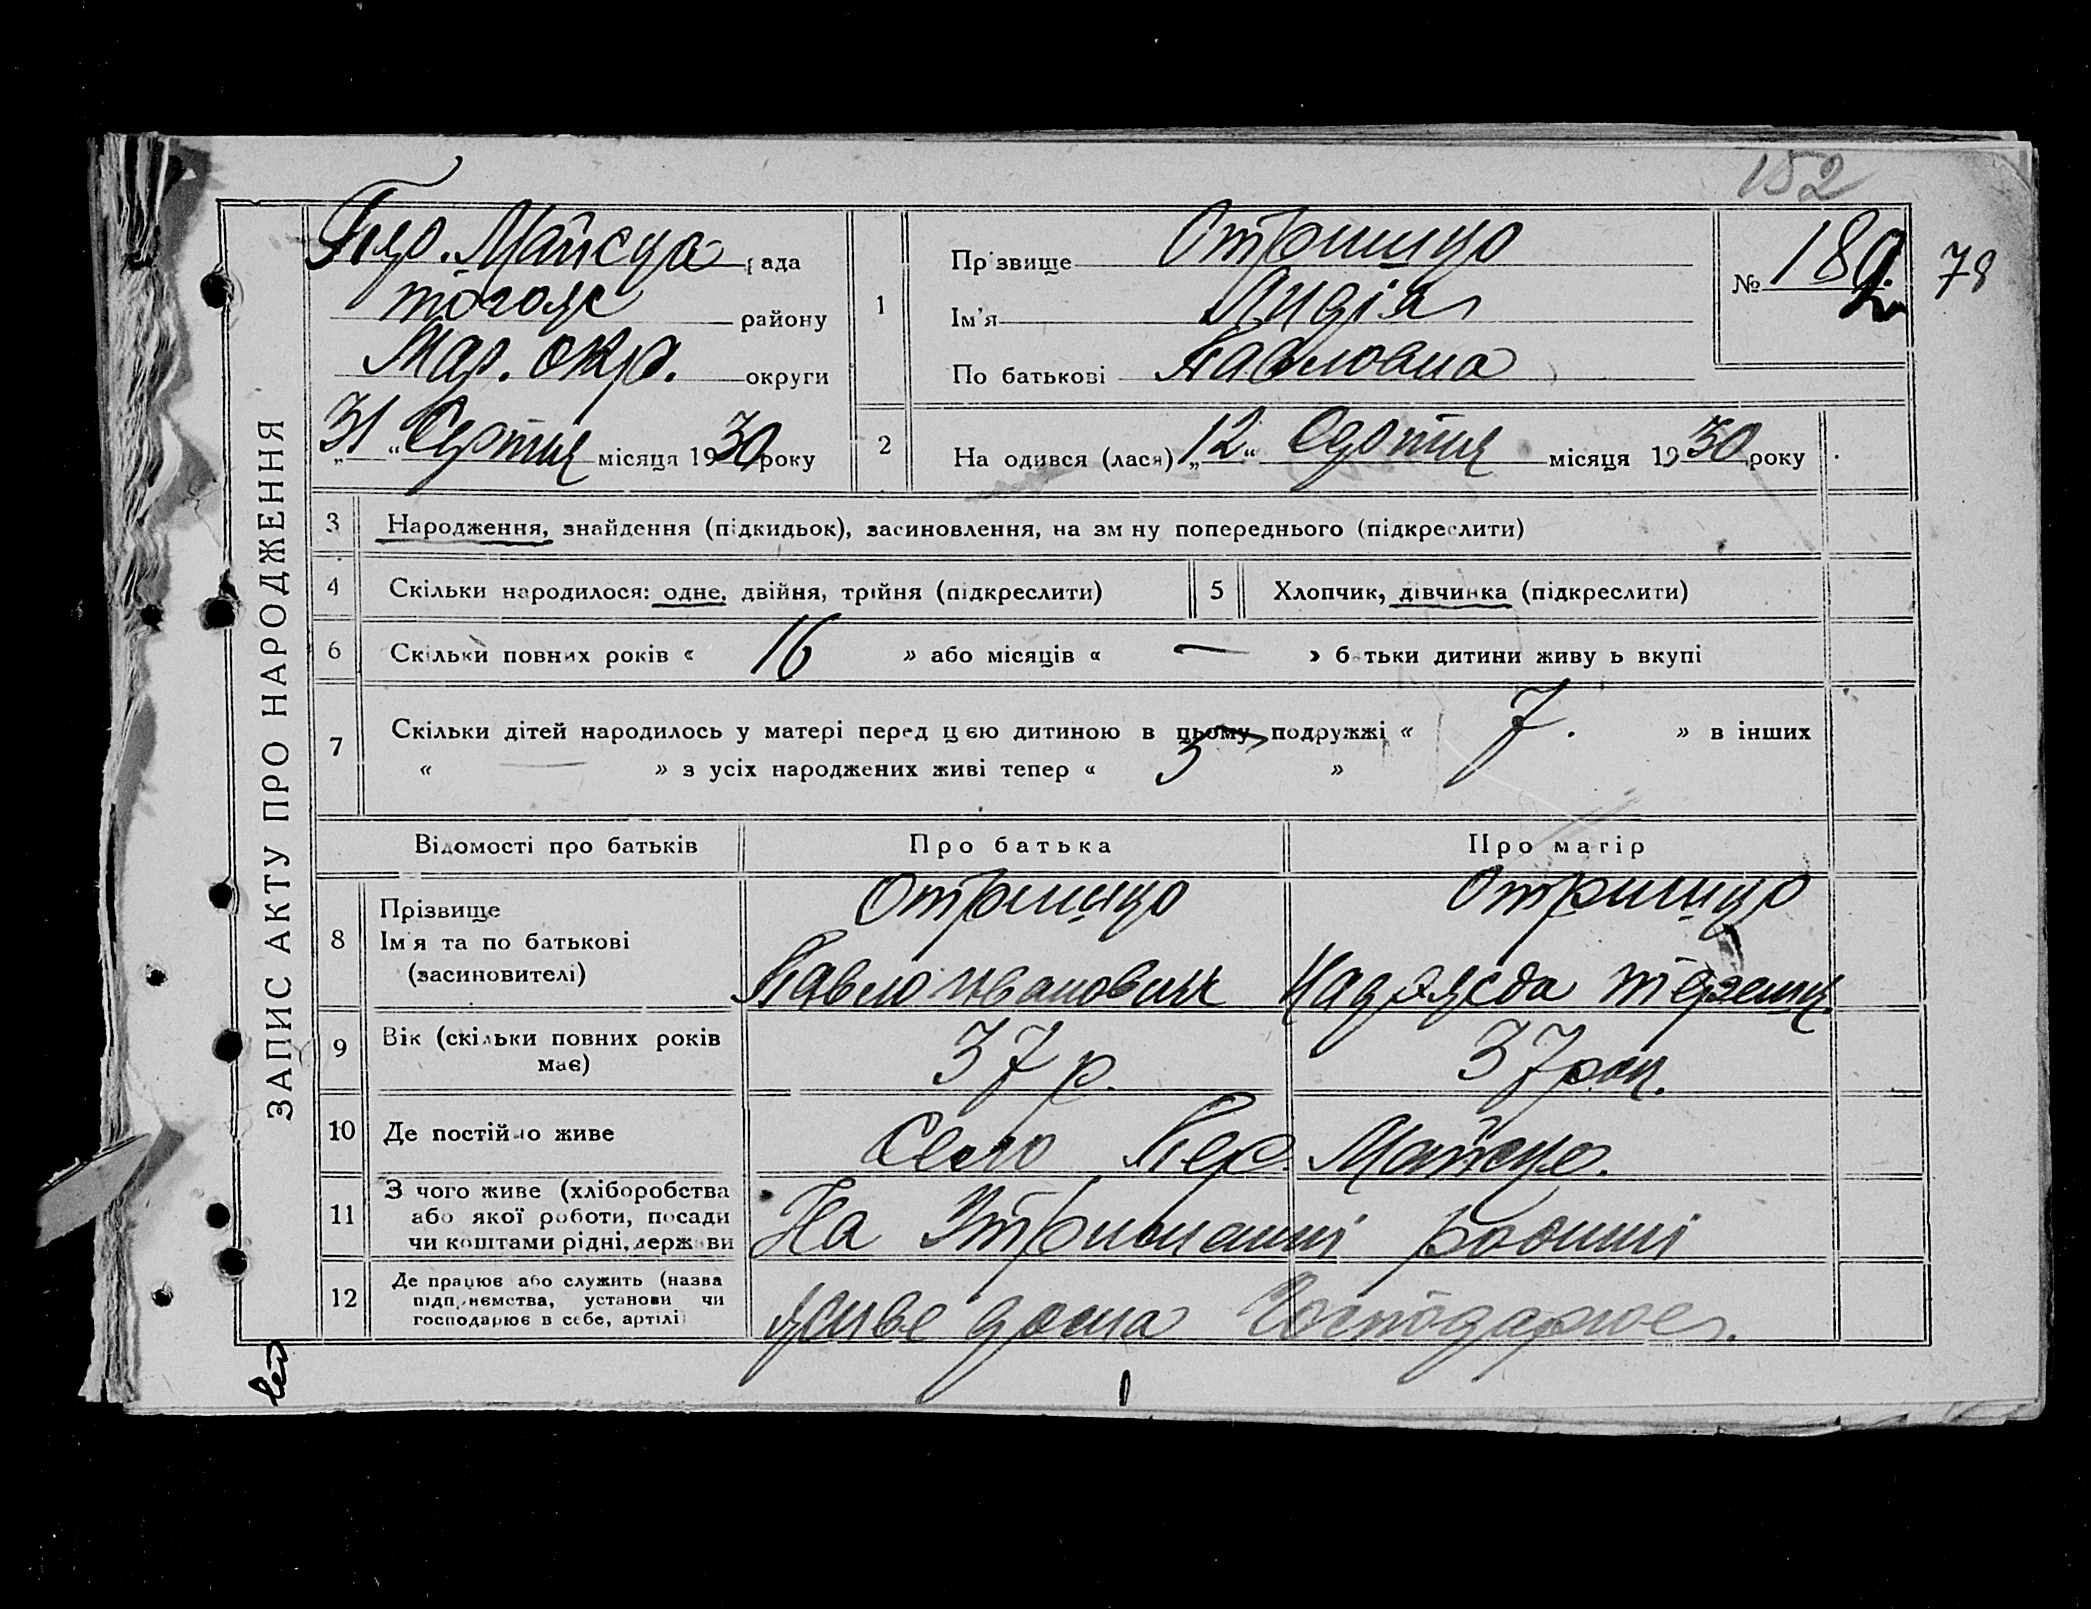 152
ЗАПИС АКТУ ПРО НАРОДЖЕННЯ
Пер. Майська рада
тогож району
Мар. окр. округи
„31“ Серпня місяця 1930 року
1
Прізвище Отришко
Ім'я Лидія
По батькові Павловна
№ 189
78
2
Народився (лася) „12“ Серпня місяця 1930 року
3 Народження, знайдення (підкидьок), засиновлення, на зміну попереднього (підкреслити)
4 Скільки народилося: одне, двійня, трійня (підкреслити)
5 Хлопчик, дівчинка (підкреслити)
6 Скільки повних років « 16 » або місяців « — » батьки дитини живуть вкупі
7 Скільки дітей народилось у матері перед цією дитиною в цьому подружжі « 7. » в інших
« — » з усіх народжених живі тепер « 5 »
Відомості про батьків
Про батька
Про матір
8 Прізвище
Ім'я та по батькові
(засиновителі)
Отришко
Павло Иванович
Отришко
Надежда
9 Вік (скільки повних років
має)
37 р.
37 рок.
10 Де постійно живе
Село Пер. Майське.
11 З чого живе (хліборобства
або якої роботи, посади
чи коштами рідні, держави
На Утриманні родини
12 Де працює або служить (назва
підприємства, установи чи
господарює в себе, артілі)
живе дома Господарює.